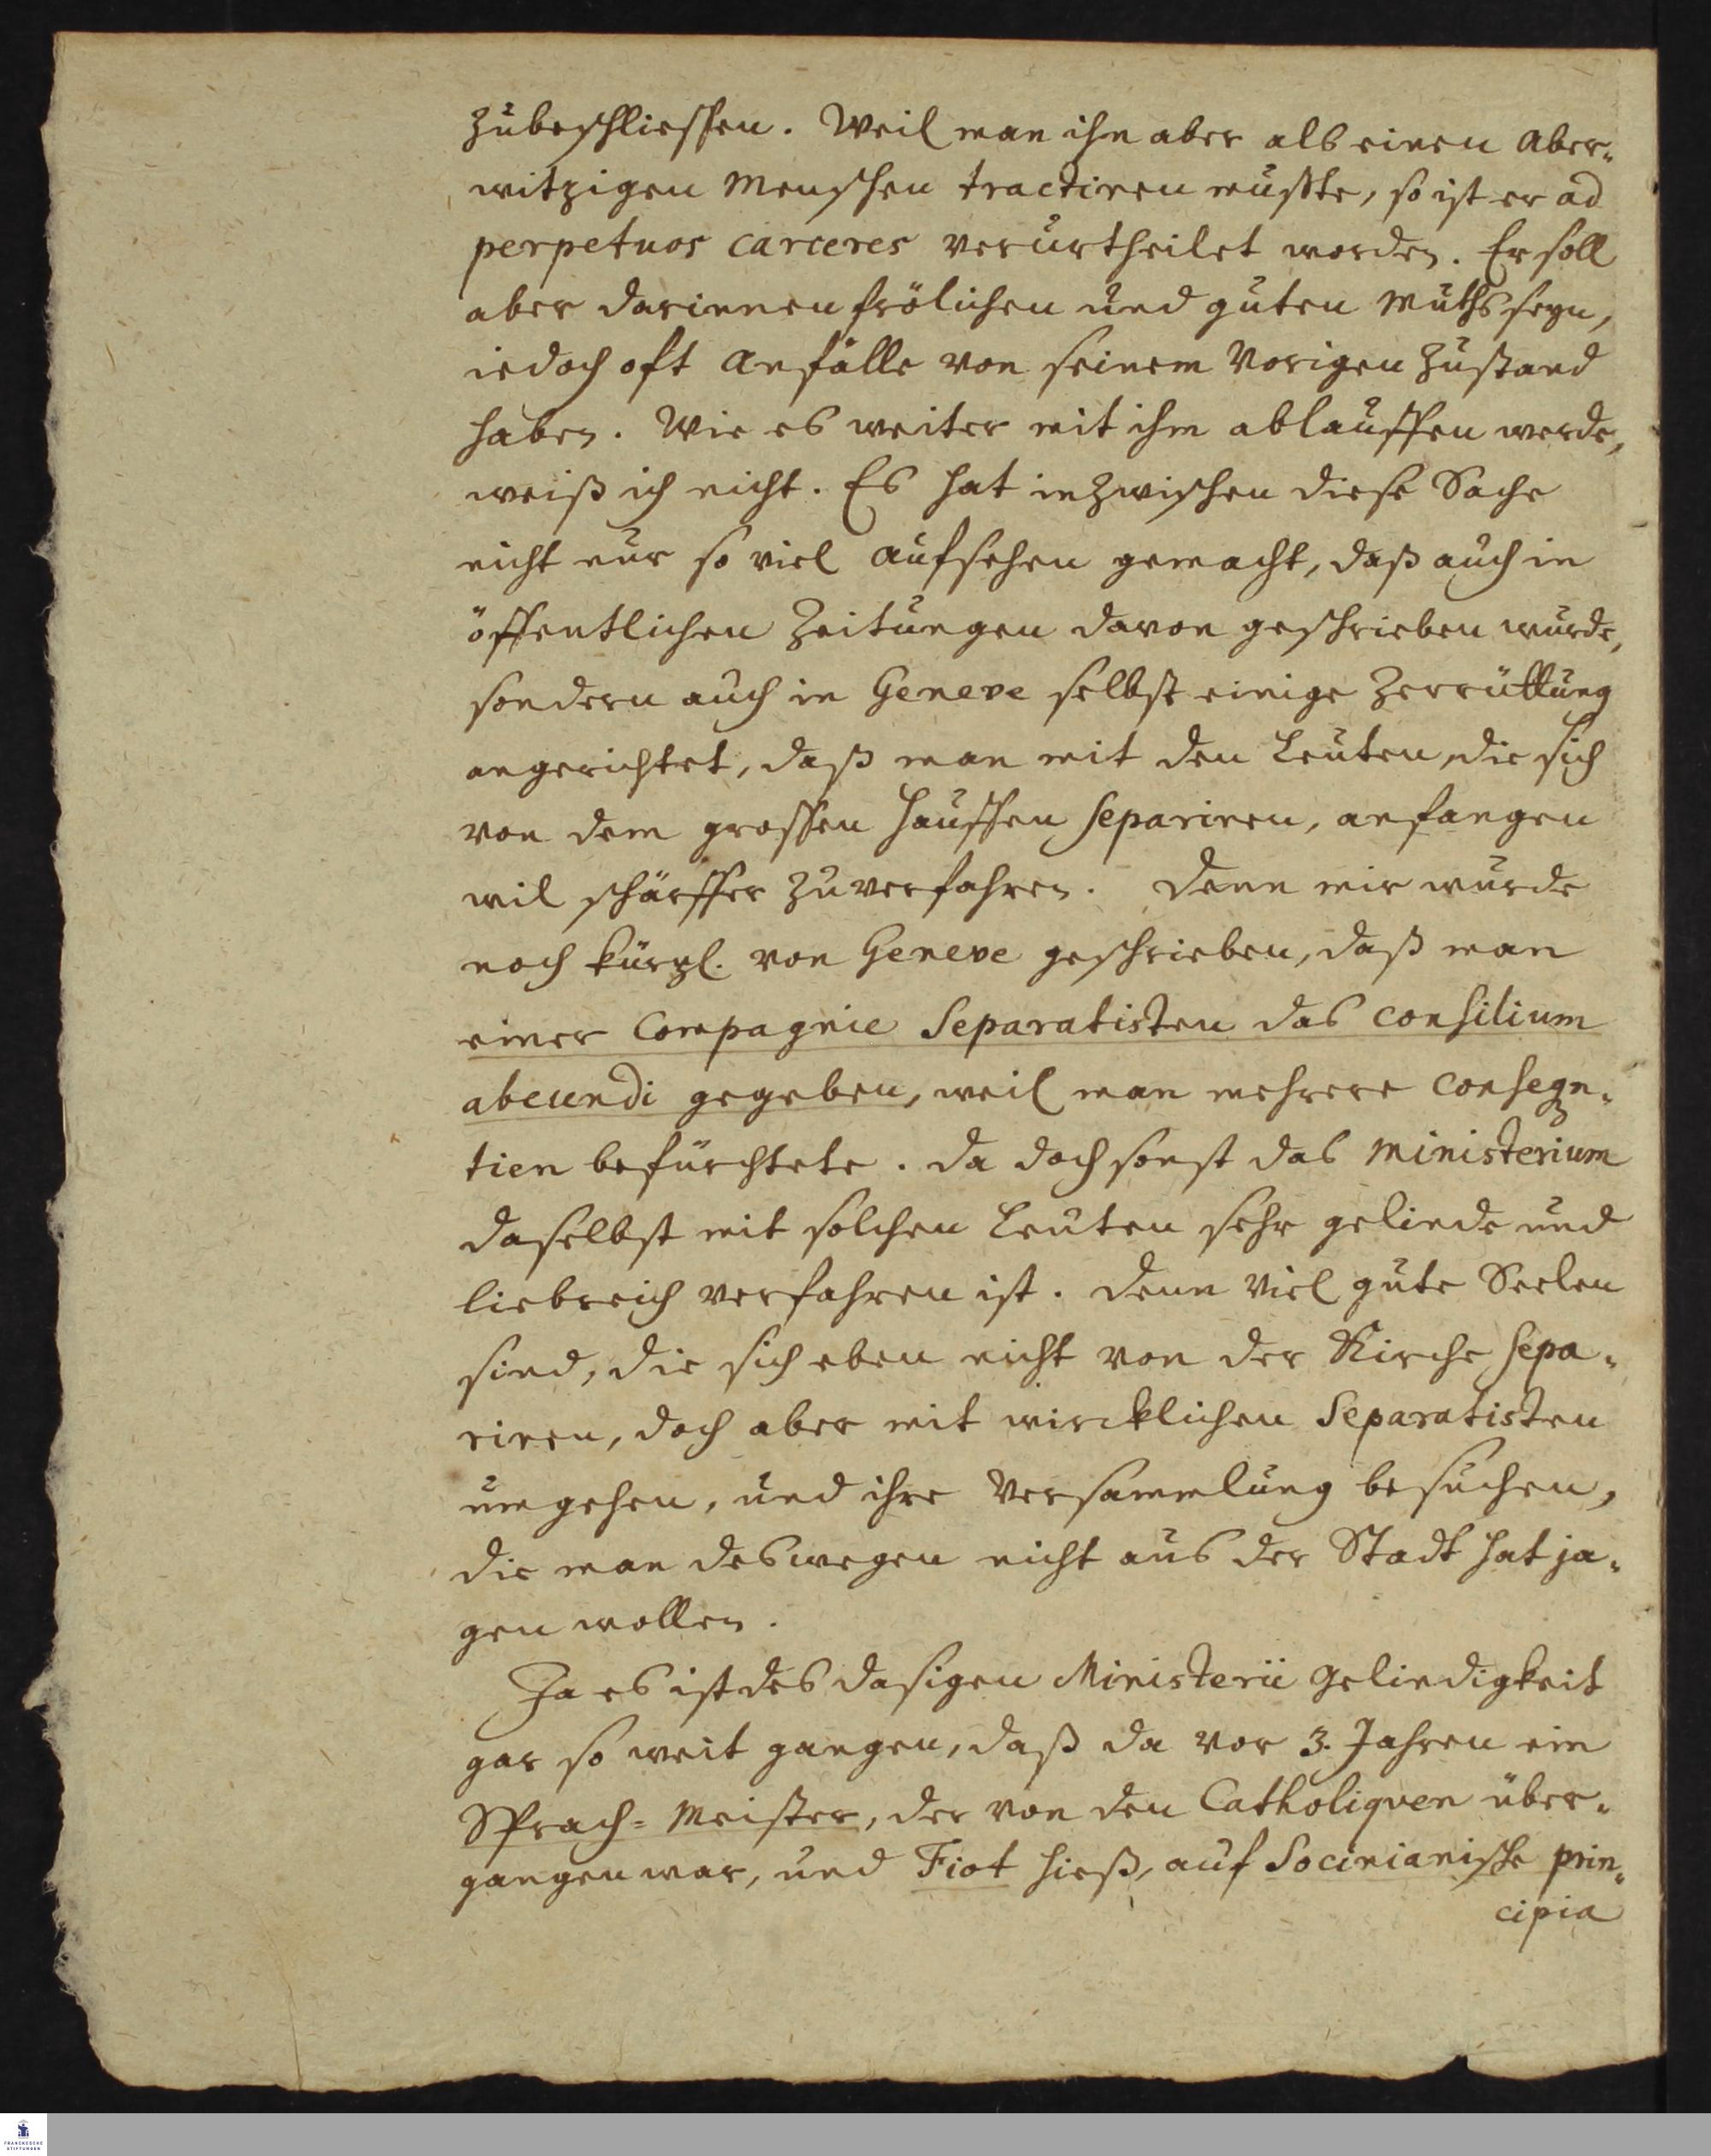 zubeschliessen. Weil man ihn aber als einen Aber-
witzigen Menschen tractiren muste, so ist er ad
perpetuos carceres verurtheilet worden. Er soll
aber darinnen frölichen und guten Muths seyn,
iedoch oft Anfälle von seinem Vorigen Zustand
haben. Wie es weiter mit ihm ablauffen werde,
weiß ich nicht. Es hat inzwischen diese Sache
nicht nur so viel Aufsehen gemacht, daß auch in
öffentlichen Zeitungen davon geschrieben wurde,
sondern auch in Geneve selbst einige Zerrüttung
angerichtet, daß man mit den Leuten, die sich
von dem grossen Hauffen separiren, anfangen
wil schärffer zuverfahren. Denn mir wurde
noch kürzl. von Geneve geschrieben, daß man
einer Compagnie Separatisten das consilium
abeundi gegeben, weil man mehrere conseqn-
tien befürchtete. Da doch sonst das Ministerium
daselbst mit solchen Leuten sehr gelinde und
liebreich verfahren ist. Denn viel gute Seelen
sind, die sich eben nicht von der Kirche sepa-
riren, doch aber mit wircklichen Separatisten
umgehen, und ihre Versammlung besuchen,
die man deswegen nicht aus der Stadt hat ja-
gen wollen.
Ja es ist des dasigen Ministerii Gelindigkeit
gar so weit gangen, daß da vor 3. Jahren ein
Sprach=Meister, der von den Catholiqven über-
gangen war, und Fiot hieß, auf Socinianische prin-
cipia
FRANCKESCHE
STIFTUNGEN